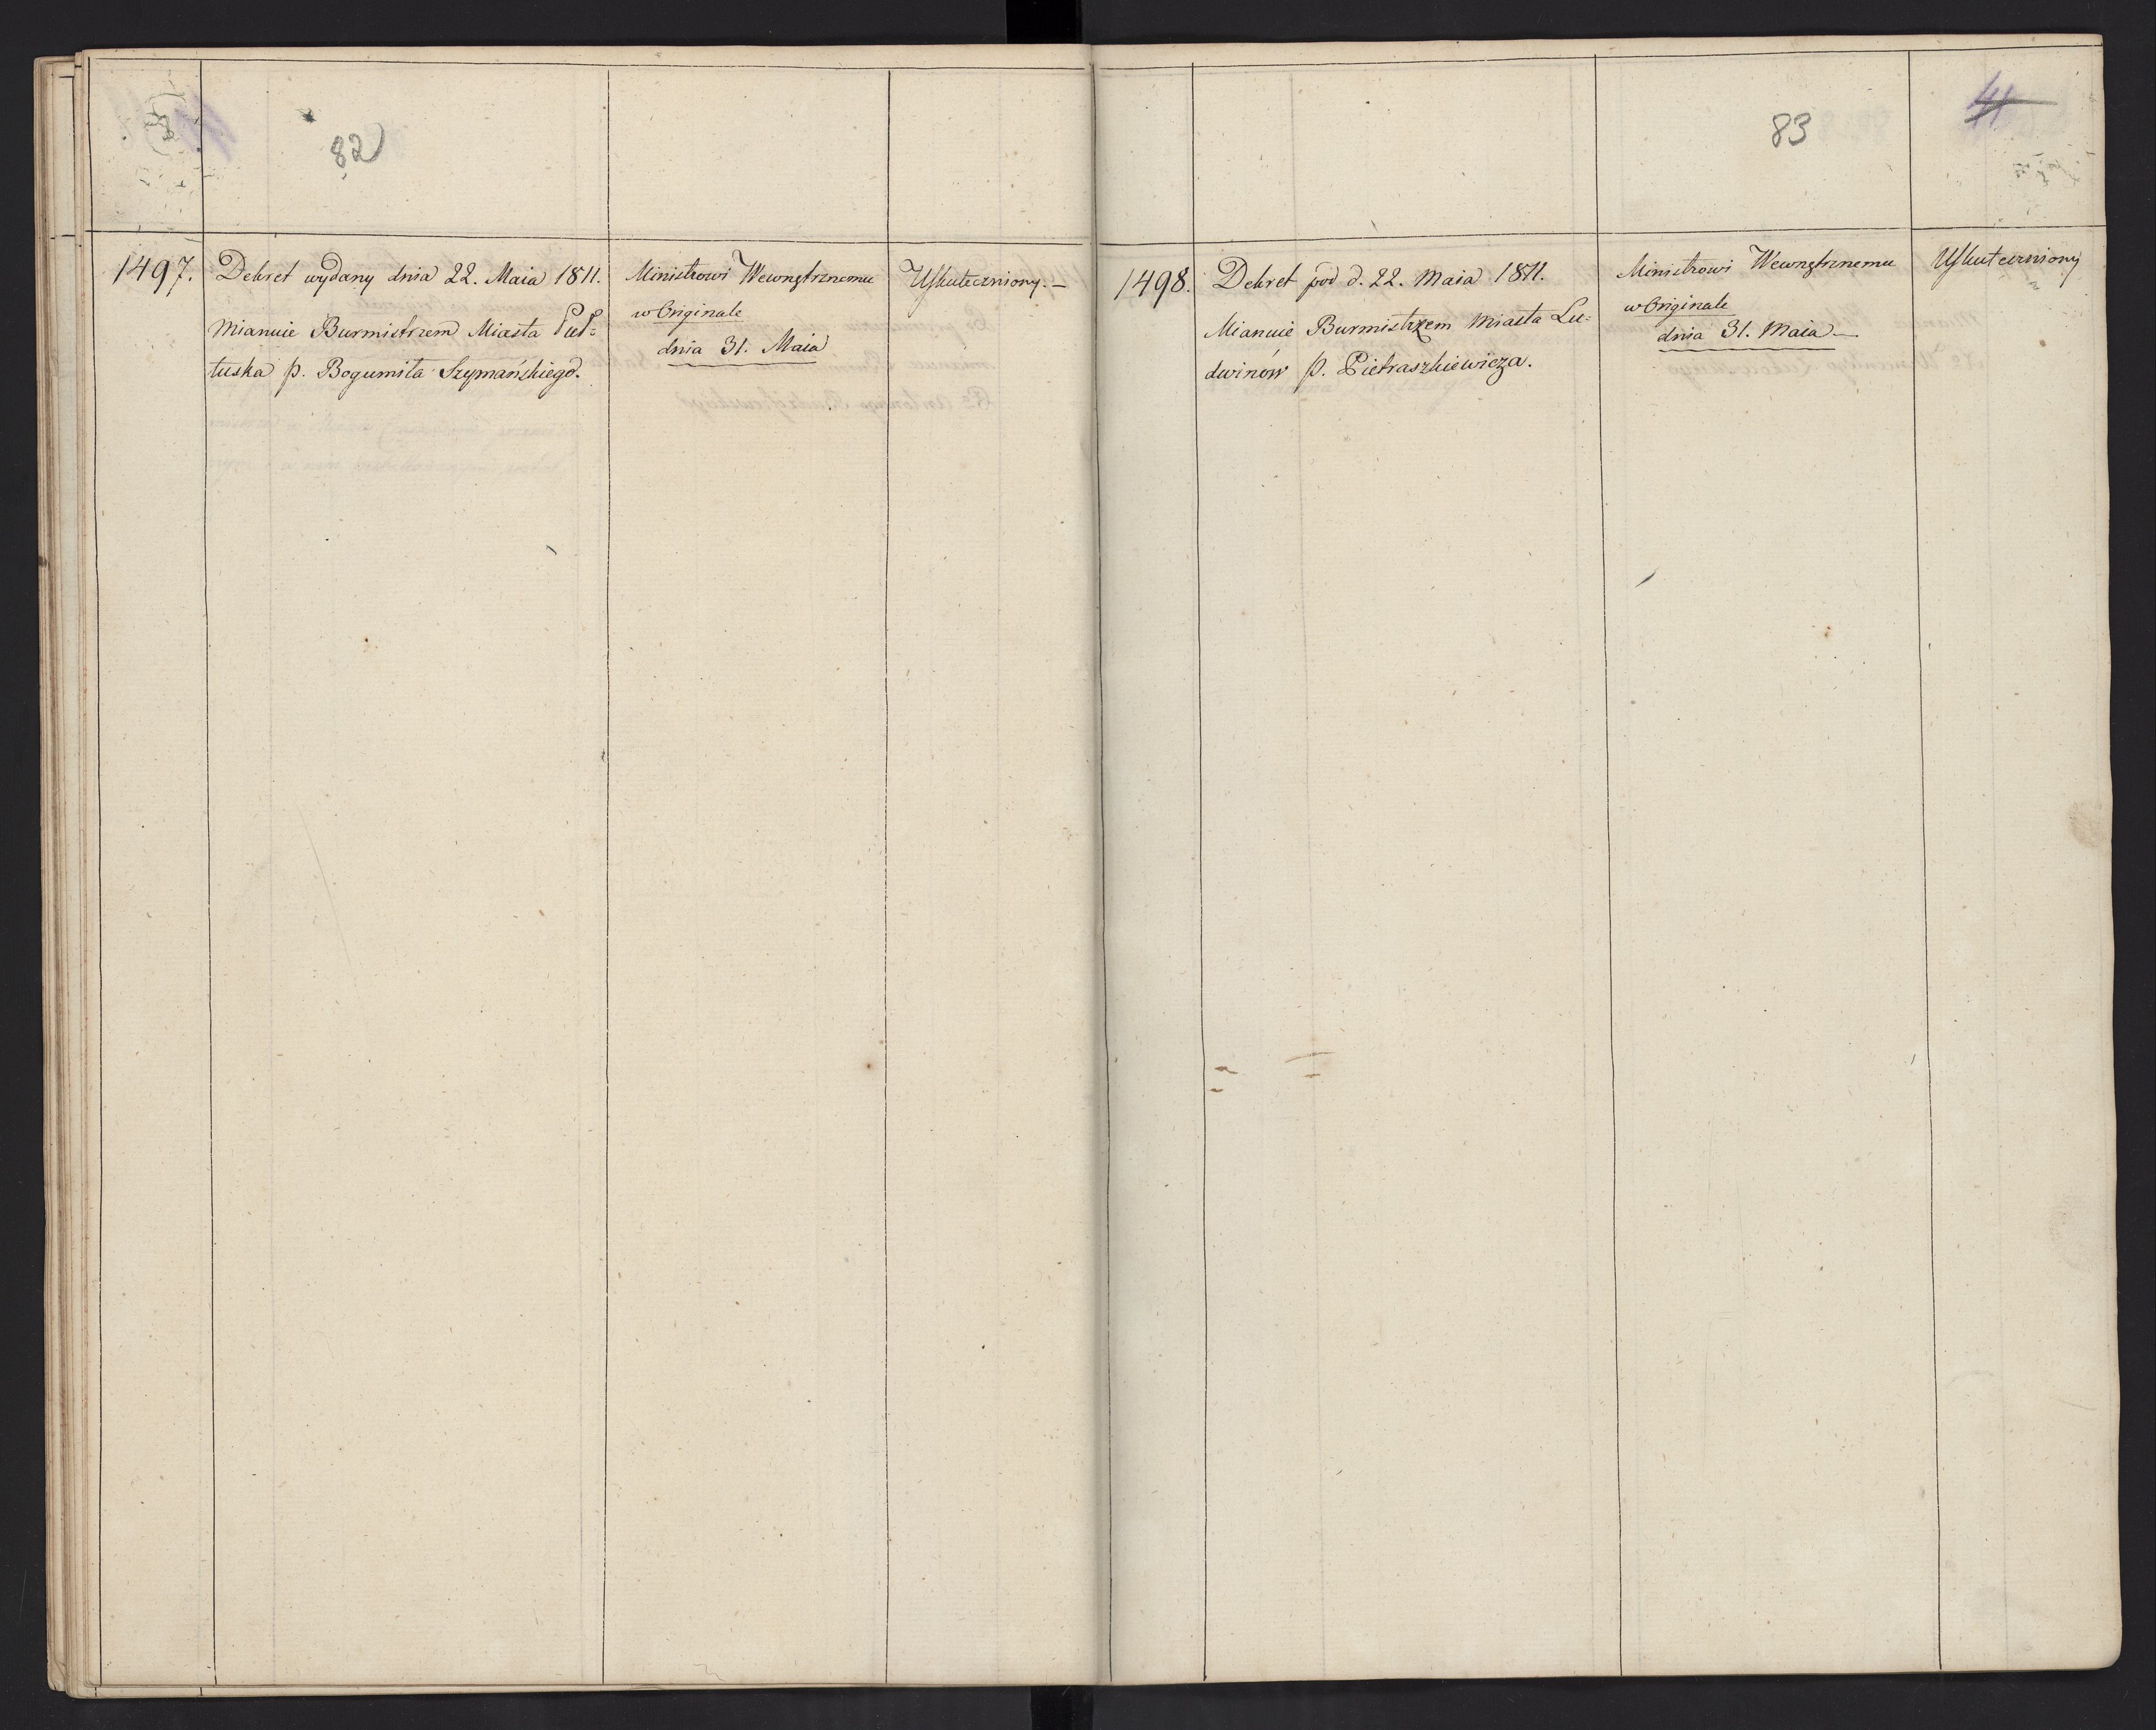 82
1497.
Dekret wydany dnia 22. Maia 1811.
mianuie Burmistrzem Miasta Puł=
tuska p. Bogumiła Szymańskiego.
Ministrowi Wewnętrznemu
w Originale
dnia 31. Maia
Uskuteczniony. –
83
41
1498.
Dekret pod d. 22. Maia 1811.
Mianuie Burmistrzem Miasta Lu=
dwinów p. Pietraszkiewicza.
Ministrowi Wewnętrznemu
w Originale
dnia 31. Maia –
Uskuteczniony